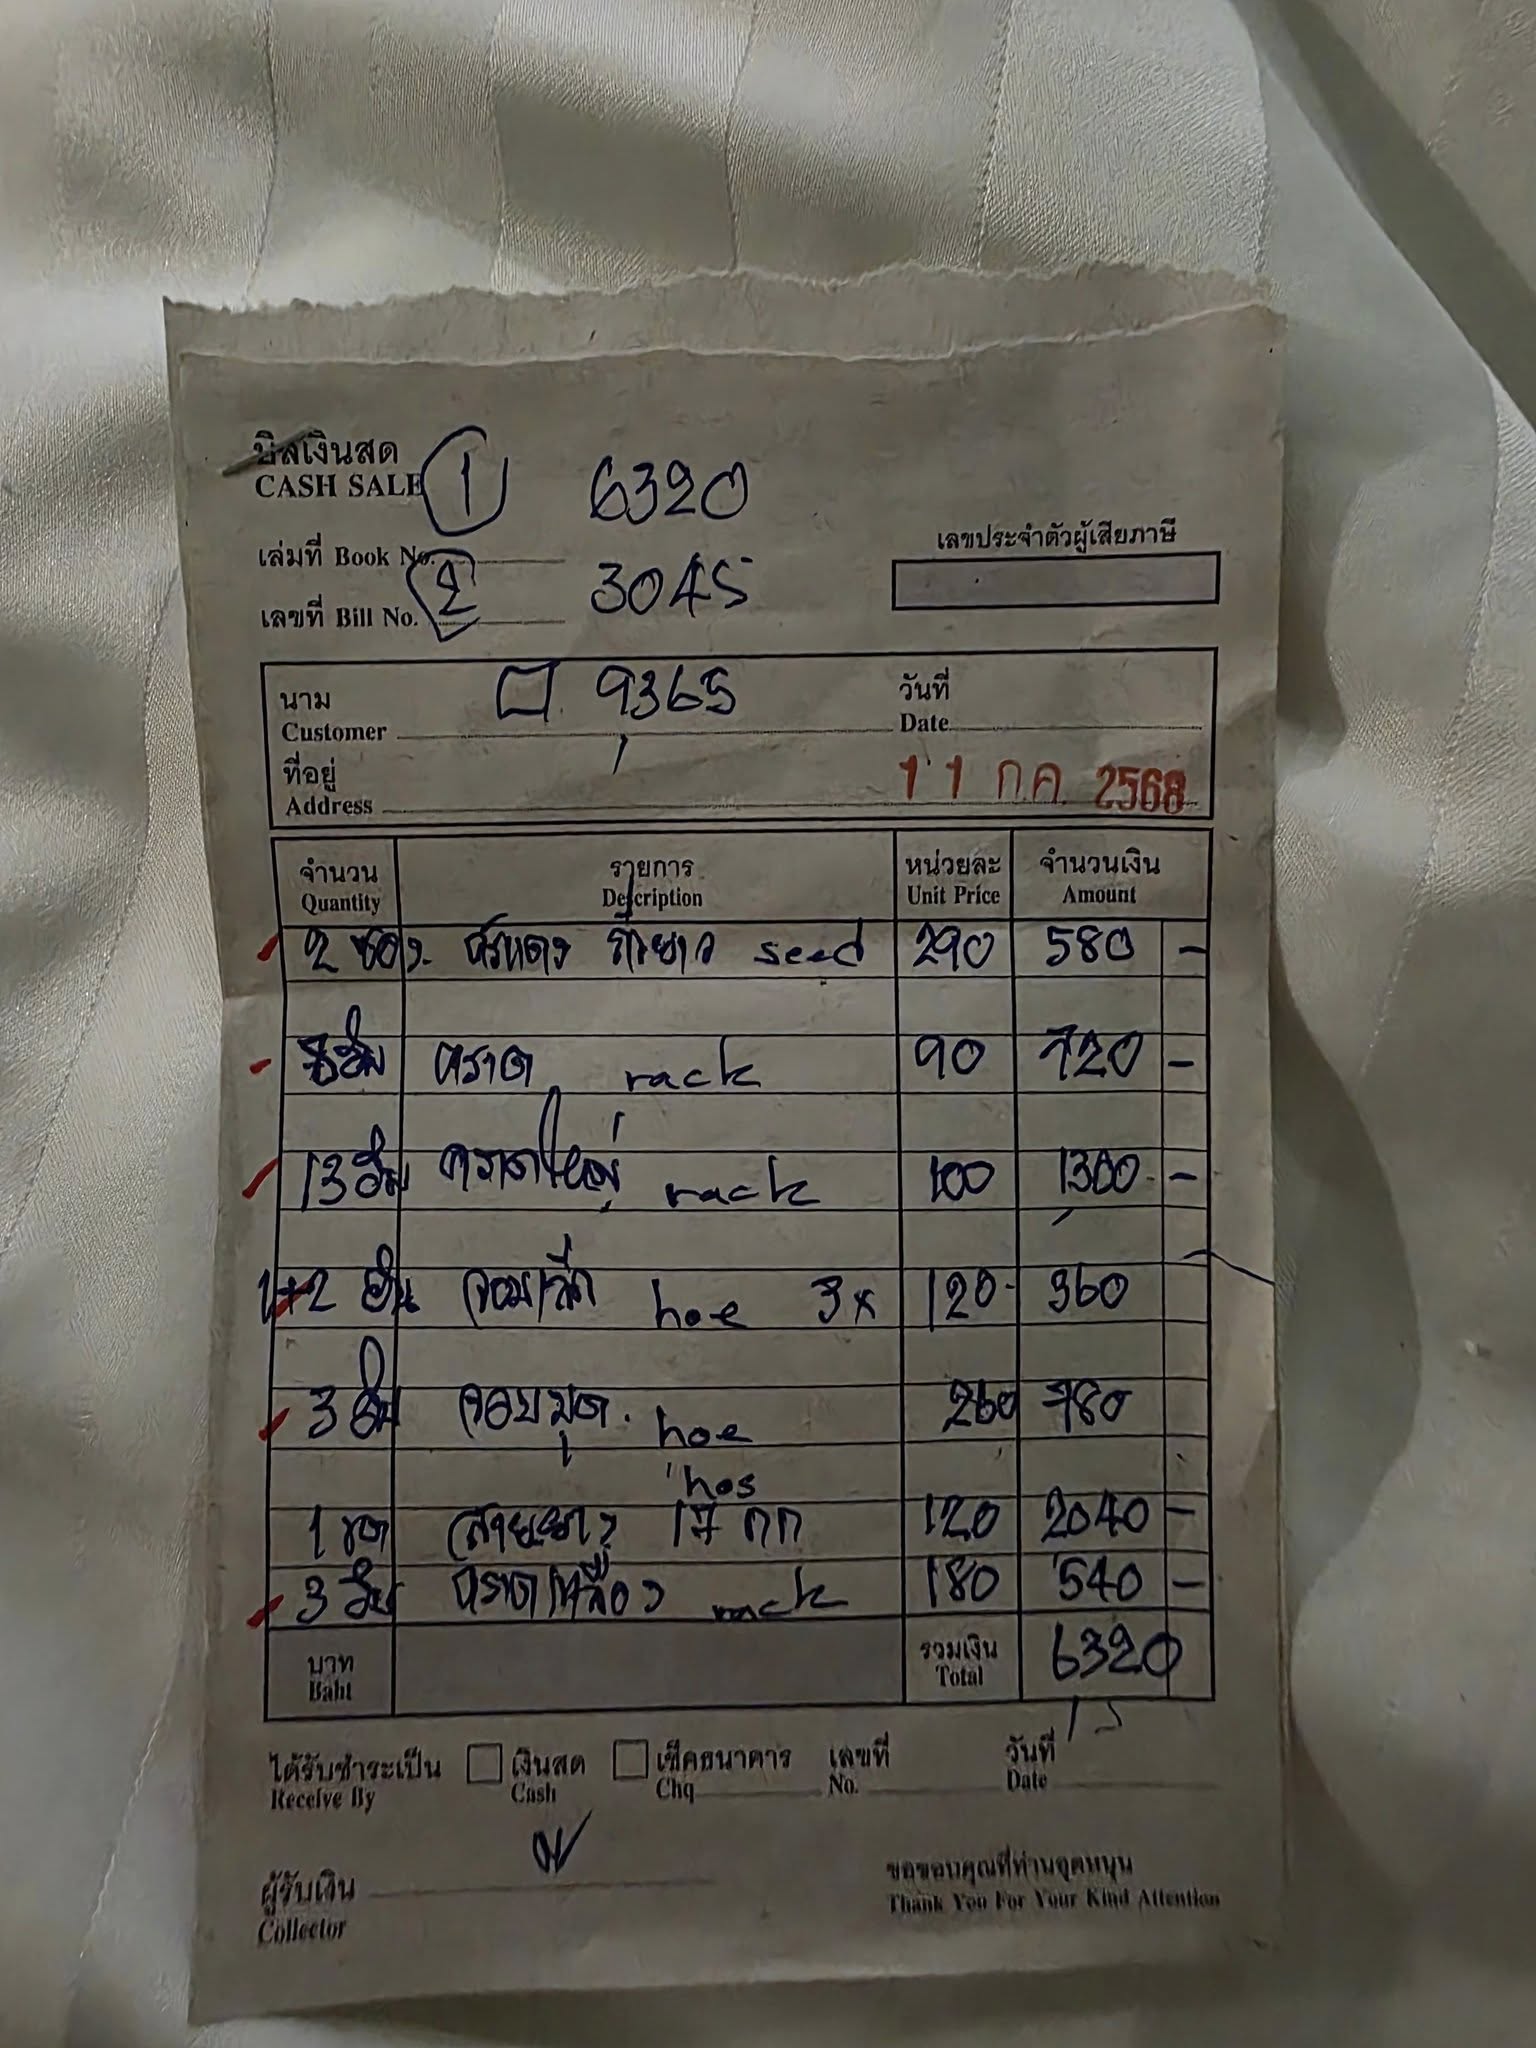 บิลเงินสด
CASH SALE ① 6320
เล่มที่ Book No.
② 3045
เลขที่ Bill No.
เลขประจำตัวผู้เสียภาษี
นาม 9365 วันที่
Customer Date
ที่อยู่ 11 ก.ค. 2568
Address
จำนวน รายการ หน่วยละ จำนวนเงิน
Quantity Description Unit Price Amount
2 ซอง ถั่วยาว seed 290 580 -
8 อัน คราด rack 90 720 -
13 อัน คราดใหญ่ rack 100 1300 -
1+2 อัน จอบ hoe 3x 120- 360
3 อัน จอบขุด. hoe 260 780
hos
1 ขด สายยาง 17 กก 120 2040 -
3 อัน คราดเหลือง rack 180 540 -
บาท รวมเงิน 6320
Baht Total
ได้รับชำระเป็น เงินสด เช็คธนาคาร เลขที่ วันที่
Receive By Cash Chq No. Date
ผู้รับเงิน
Collector
ขอขอบคุณที่ท่านอุดหนุน
Thank You For Your Kind Attention